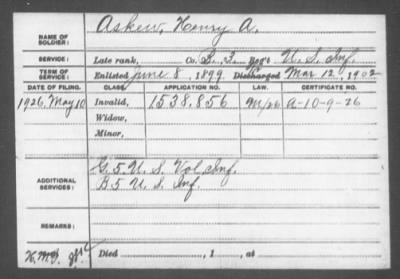 NAME OF SOLDIER: Askew, Henry A.
SERVICE: Late rank, Co. B. 3. Reg't U. S. Inf.
TERM OF SERVICE: Enlisted June 8, 1899 Discharged Mar 12, 1902
DATE OF FILING. CLASS. APPLICATION NO. LAW. CERTIFICATE NO.
1926, May 10 Invalid, 1538,856 A-10-9-26
Widow,
Minor,
ADDITIONAL SERVICES: G. 5 U. S. Vol Inf.
B 5 U. S. Inf.
REMARKS:
Died , 1 , at